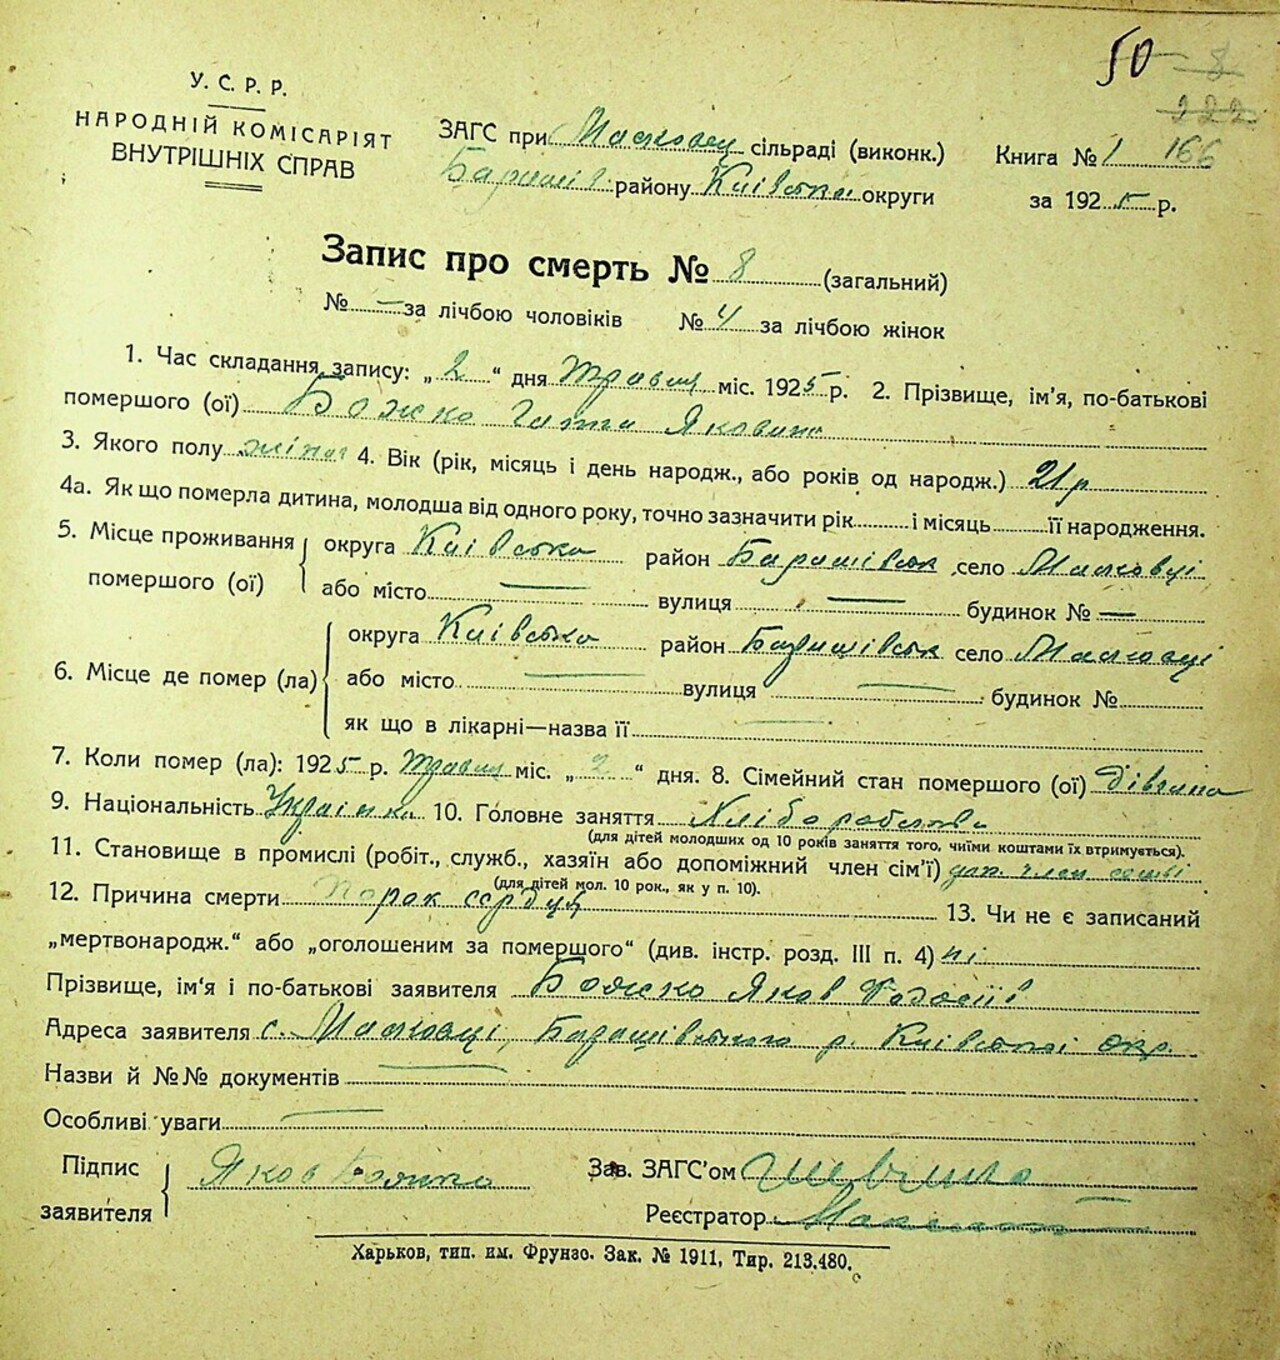 50 8
222
У. С. Р. Р.
НАРОДНІЙ КОМІСАРІЯТ
ВНУТРІШНІХ СПРАВ
ЗАГС при Масковец сільраді (виконк.)
Баришів району Київська округи
Книга № 1 166
за 1925 р.
Запис про смерть № 8 (загальний)
№ — за лічбою чоловіків № 4 за лічбою жінок
1. Час складання запису: „2“ дня Травня міс. 1925 р. 2. Прізвище, ім'я, по-батькові
помершого (ої) Божко Яковна
3. Якого полу жіноч 4. Вік (рік, місяць і день народж., або років од народж.) 21 р
4а. Як що померла дитина, молодша від одного року, точно зазначити рік і місяць її народження.
5. Місце проживання помершого (ої) округа Київська район Баришівськ село Масковці
або місто — вулиця — будинок № —
6. Місце де помер (ла) округа Київська район Баришівськ село Масковці
або місто — вулиця — будинок №
як що в лікарні—назва її —
7. Коли помер (ла): 1925 р. Травня міс. „2“ дня. 8. Сімейний стан помершого (ої) дівчина
9. Національність Українка 10. Головне заняття Хліборобство
(для дітей молодших од 10 років заняття того, чиїми коштами їх втримується).
11. Становище в промислі (робіт., служб., хазяїн або допоміжний член сім'ї) доп. член семьі
(для дітей мол. 10 рок., як у п. 10).
12. Причина смерти Порок сердця 13. Чи не є записаний
„мертвонародж.“ або „оголошеним за помершого“ (див. інстр. розд. III п. 4) ні
Прізвище, ім'я і по-батькові заявителя Божко Яков Федосіїв
Адреса заявителя с. Масковці, Баришівського р. Київської окр.
Назви й №№ документів —
Особливі уваги —
Підпис заявителя Яков Божко
Зав. ЗАГС'ом Шевченко
Реєстратор
Харьков, тип. им. Фрунзо. Зак. № 1911, Тир. 213.480.